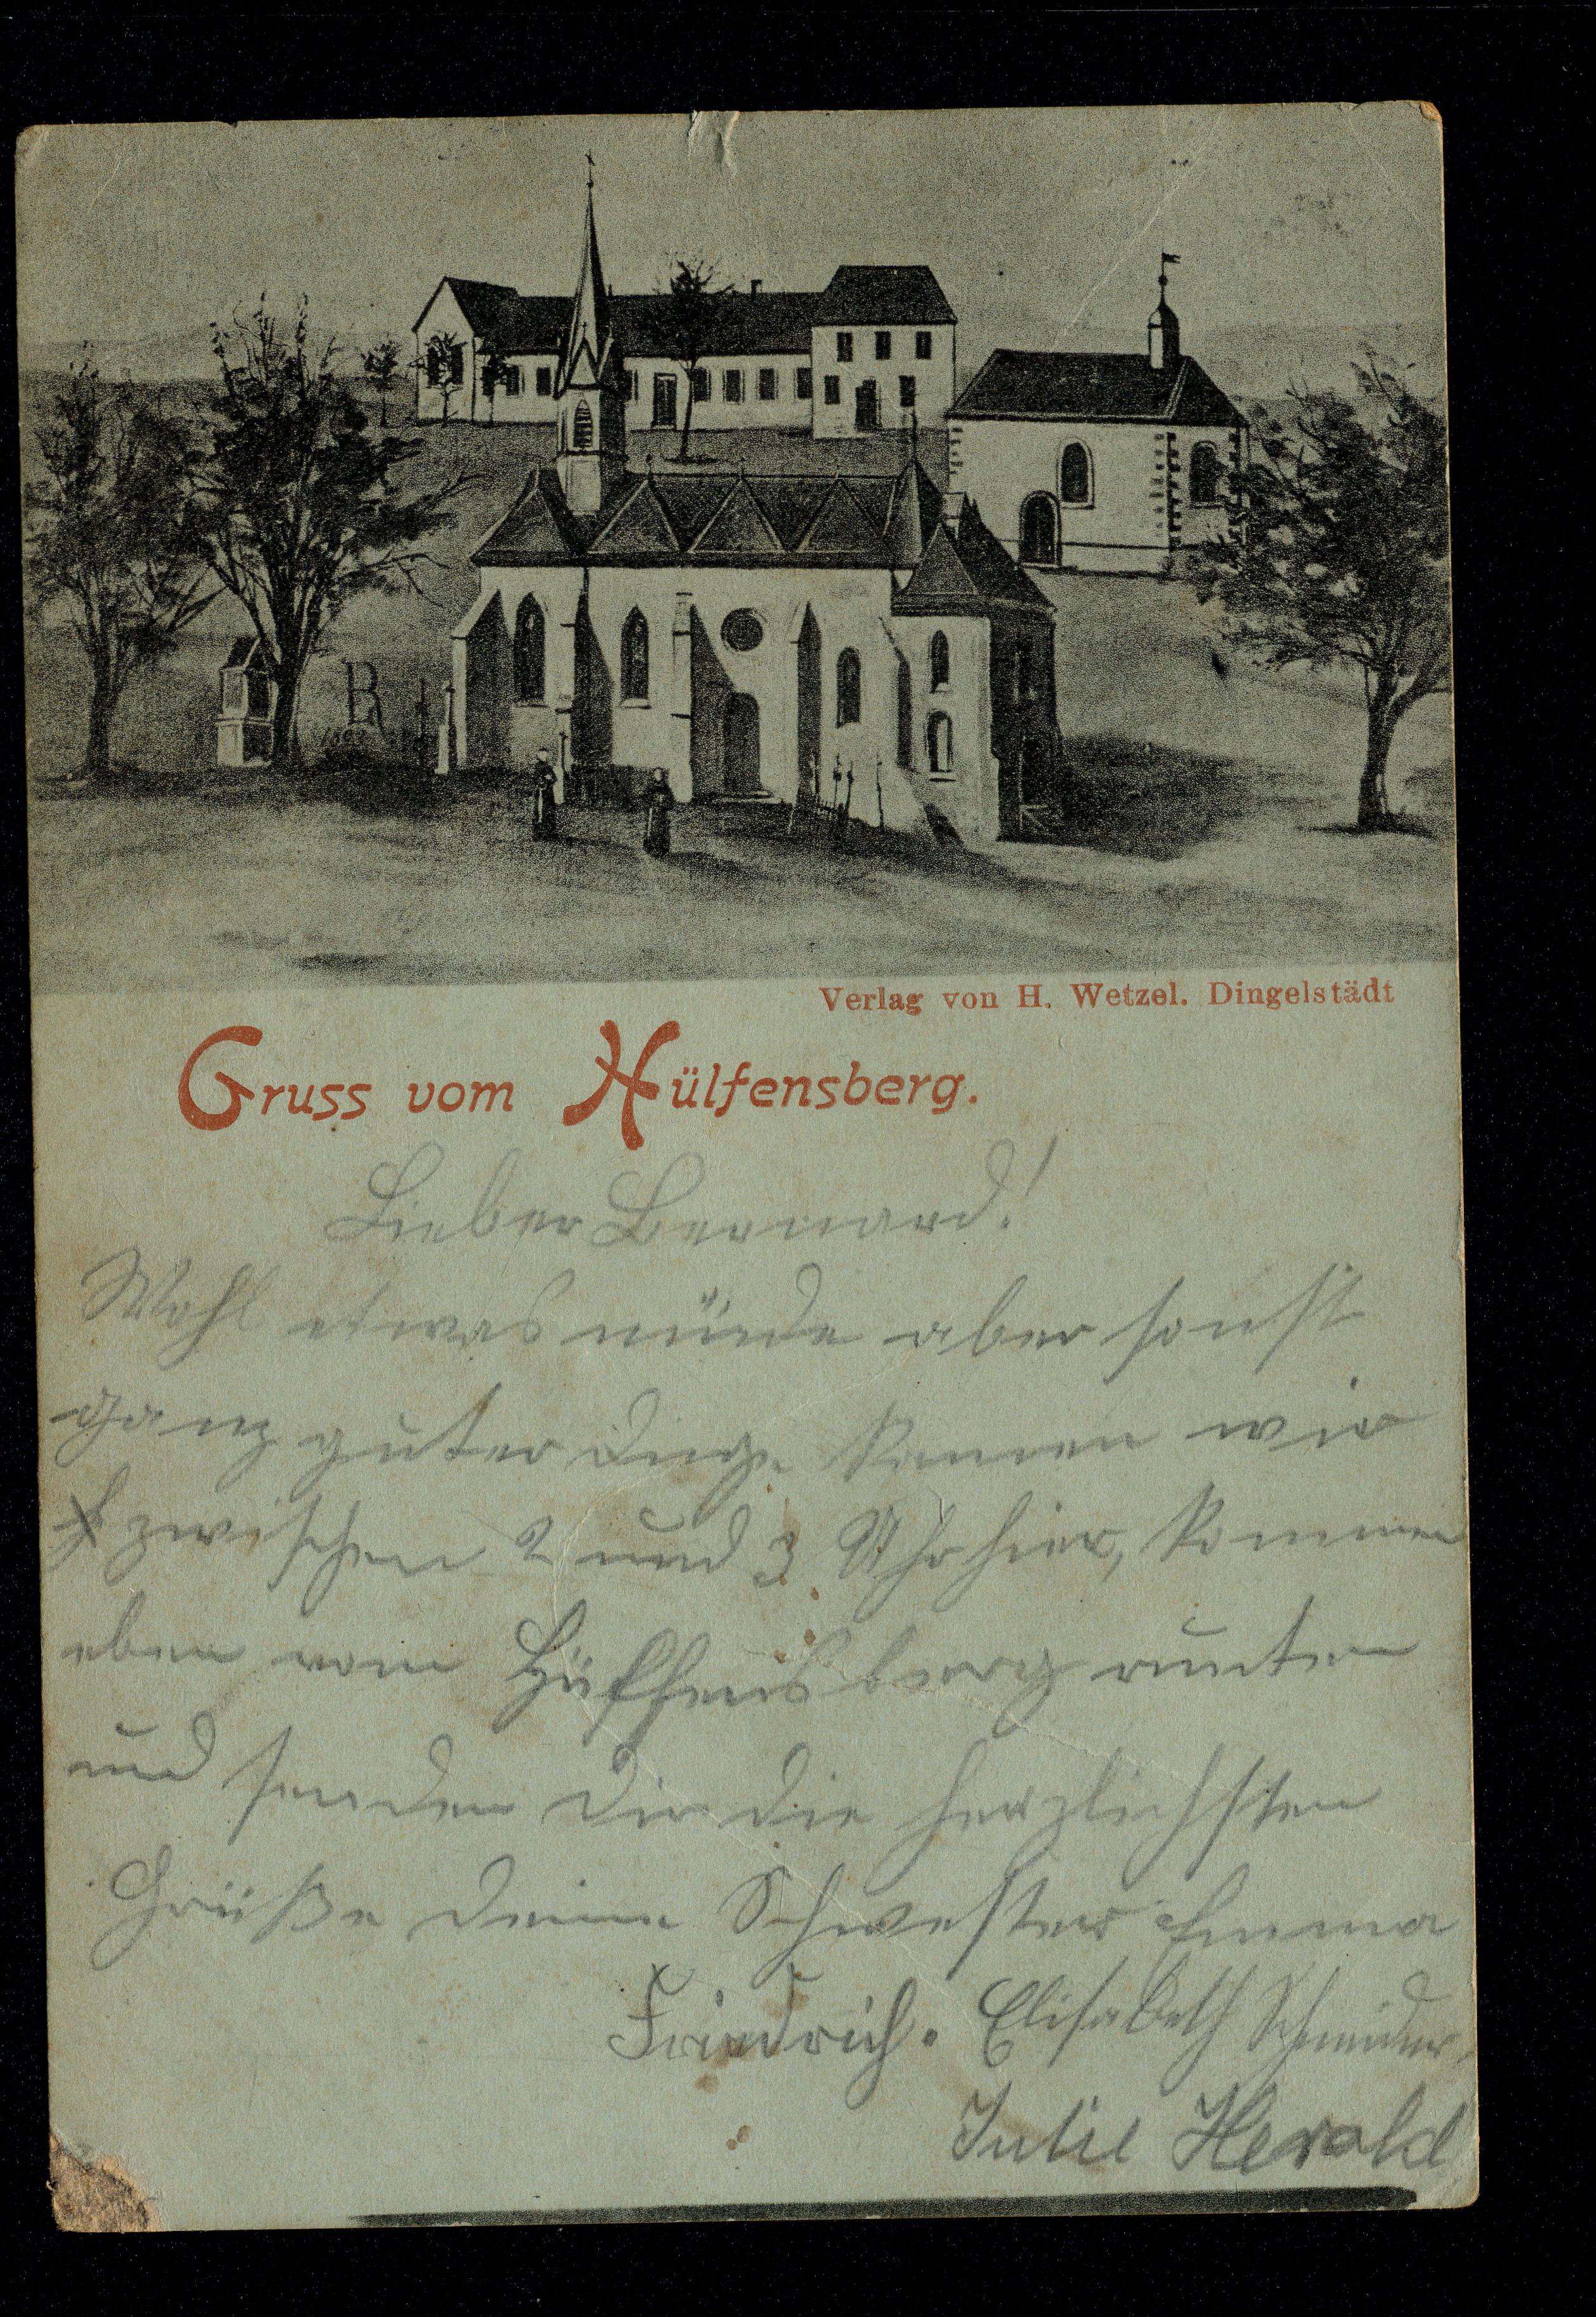 Verlag von H. Wetzel. Dingelstädt
Gruss vom Hülfensberg.
Lieber Bernard!
Wohl etwas müde aber sonst
ganz guter Dinge kamen wir
zwischen 2 und 3 Uhr hier, kommen
eben vom Hülfensberg runter
und senden Dir die herzlichsten
Grüße deine Schwester Emma
Friedrich. Elisabeth Schneider.
Julie Herold